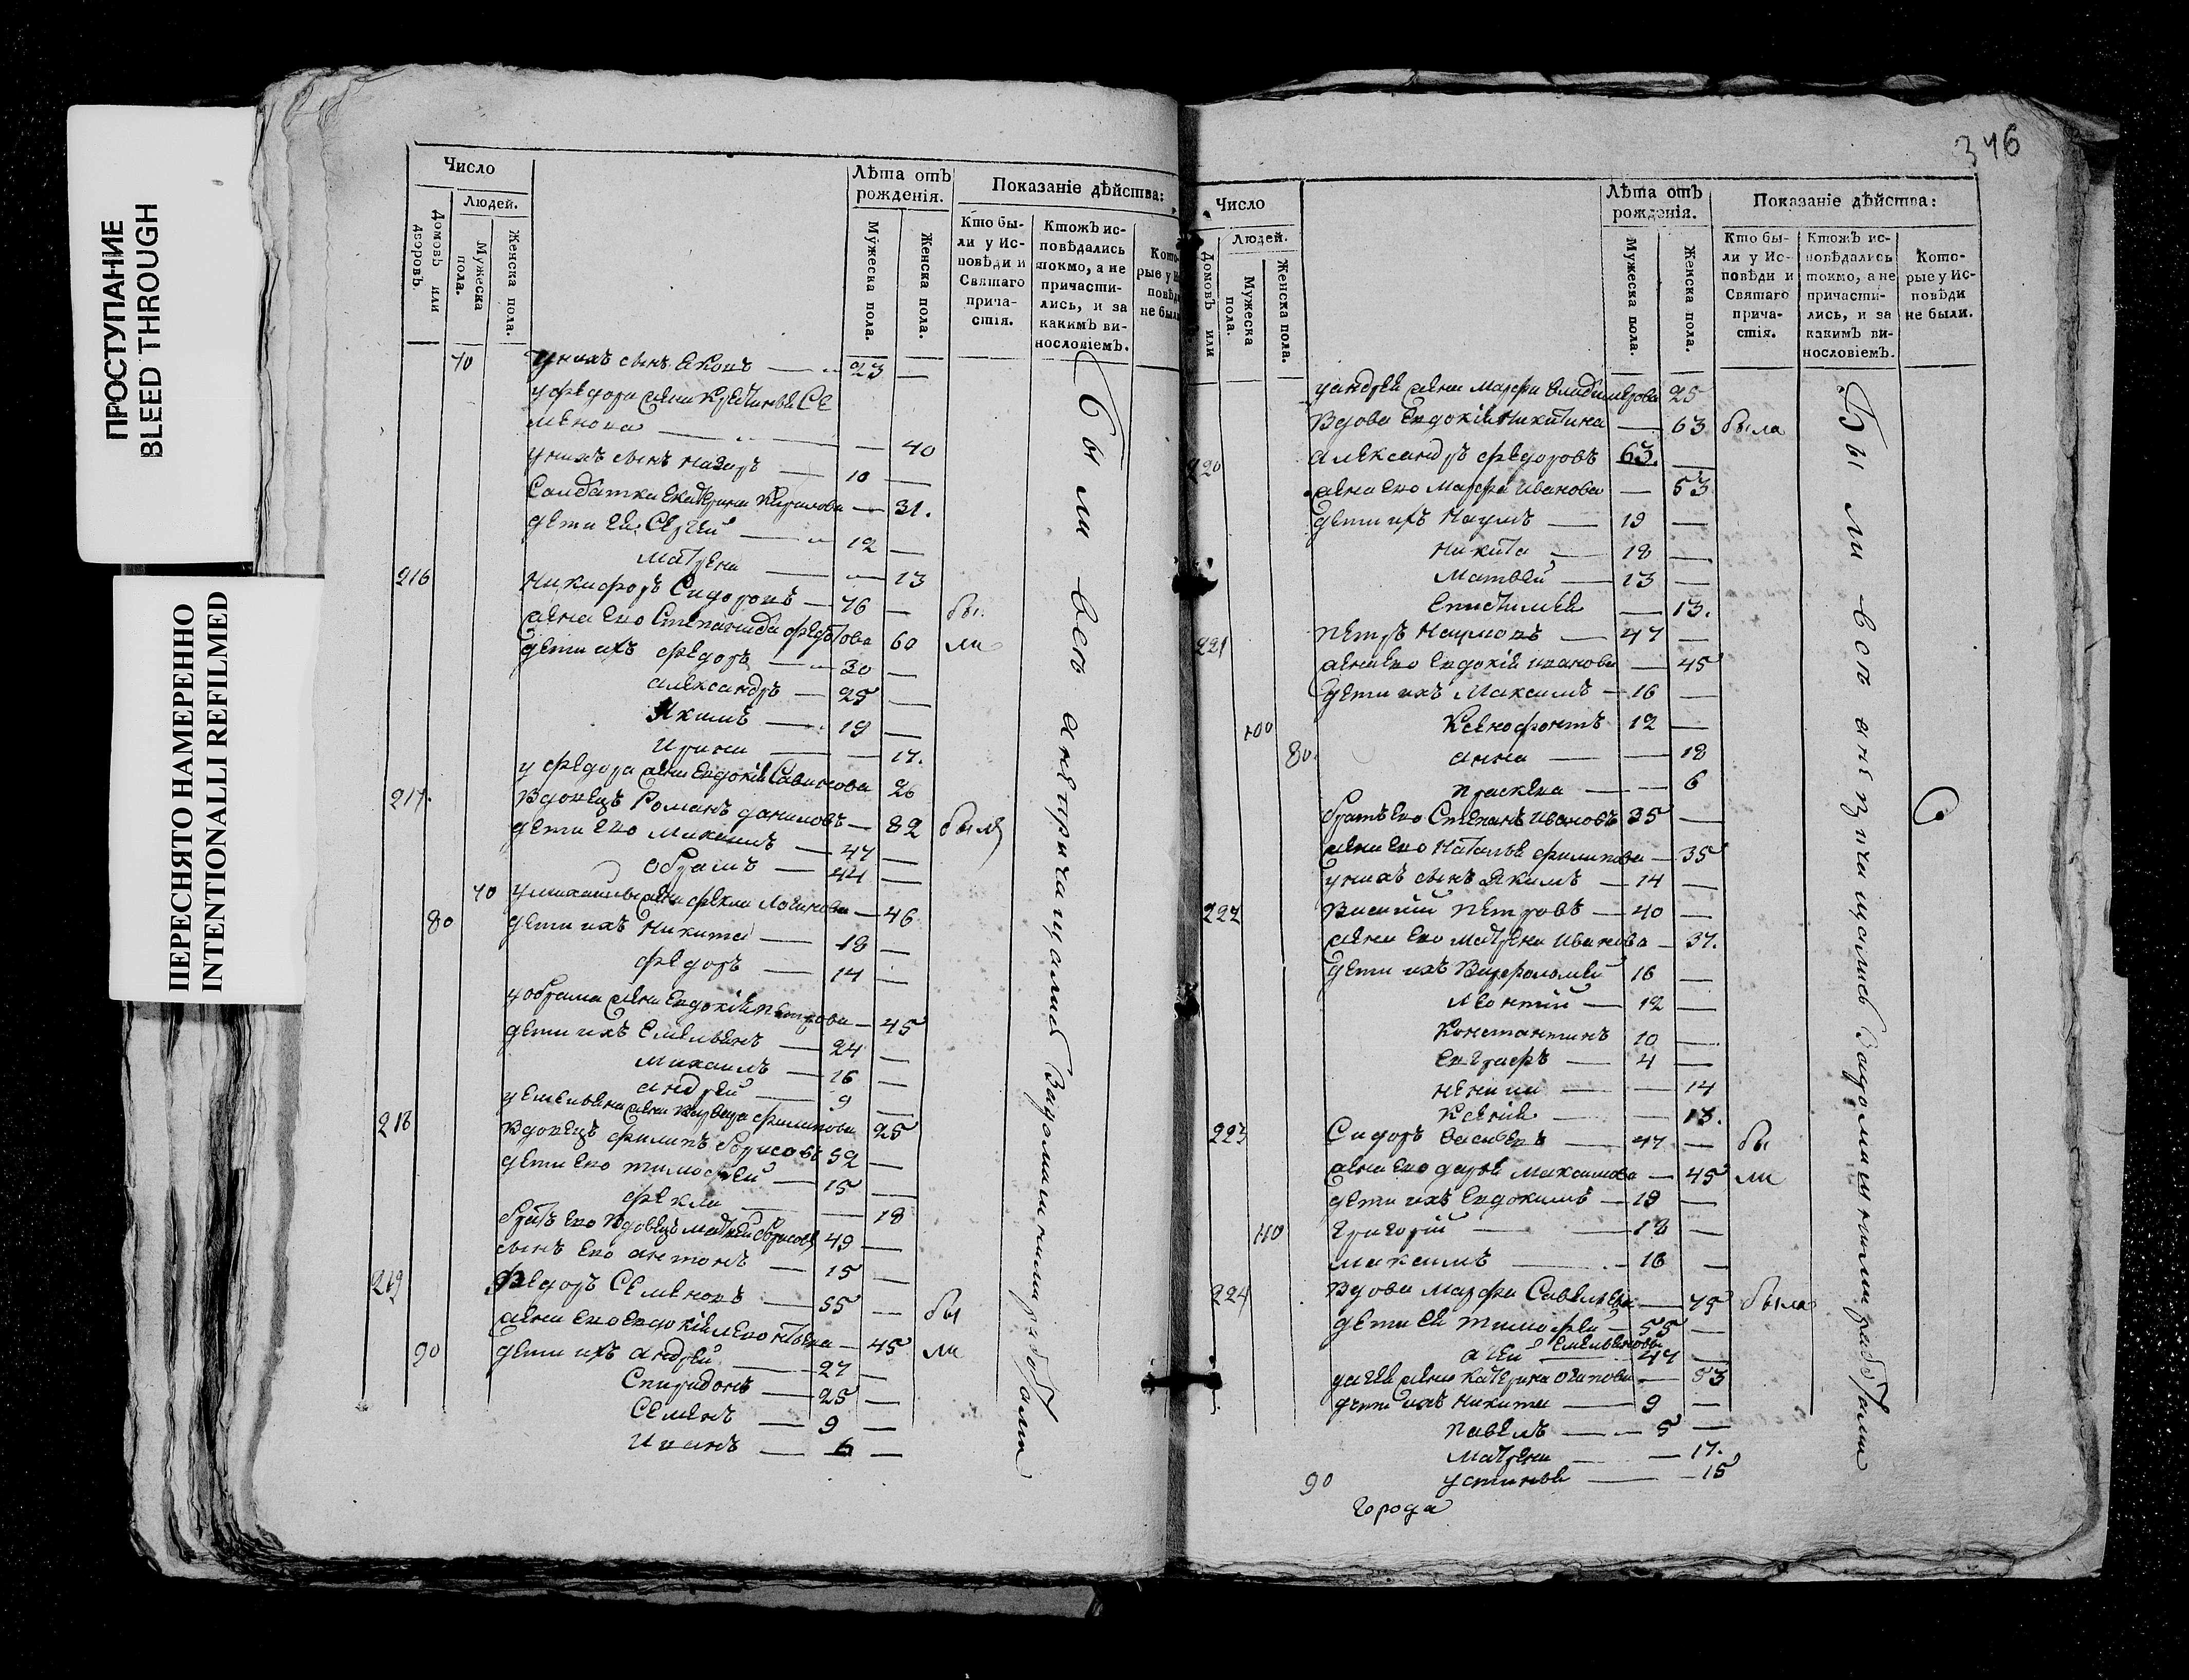 ПРОСТУПАНИЕ
BLEED THROUGH
ПЕРЕСНЯТО НАМЕРЕННО
INTENTIONALLI REFILMED
Число
Людей.
Домовъ или дворовъ.
Мужеска пола.
Женска пола.
Лѣта отъ рожденія.
Мужеска пола.
Женска пола.
Показаніе дѣйства:
Кто были у Исповѣди и Святаго причастія.
Ктожъ исповѣдались токмо, а не причастились, и за какимъ винословіемъ.
70 у нихъ сынъ Яковъ — 23 —
у федора жена Устинья Се
менова — — 40
у нихъ сынъ Назаръ — 10 —
Салдатка Екатерина Кирилова — 31.
дети ея Сергей — 12 —
Матрена — — 13
216 Никифоръ Сидоровъ — 76 — бы
жена ево Степанида федотова 60 ли
дети ихъ федоръ — 30 —
александръ — 25 —
Якимъ — 19 —
Ирина — — 17.
у федора жена Евдокія Савинова 26
217. Вдовецъ Романъ даниловъ — 82 былъ
дети ево Михаилъ — 47 —
обрамъ — 44 —
70 у михаилы жена фекла Логинова — 46
80 дети ихъ Никита — 18 —
федоръ — 14 —
у обрама жена Евдокія петрова — 45
дети ихъ Емельянъ — 24 —
Михаилъ — 16 —
андрей — 9 —
у емельяна жена варвара филипова 25
218 Вдовецъ филипъ борисовъ 52 —
дети ево тимофей — 15 —
фекла — — 18
братъ ево вдовецъ матвей борисовъ 49 —
сынъ ево антонъ — 15 —
219 федоръ Семеновъ — 55 — бы
жена ево Евдокія леонтьева — 45 ли
90 дети ихъ андрей — 27 —
Спиридонъ — 25 —
Семенъ — 9 —
Иванъ — 6 —
были все а не причащались За домашними работами
346
Число
Людей.
Домовъ или
Мужеска пола.
Женска пола.
Лѣта отъ рожденія.
Мужеска пола.
Женска пола.
Показаніе дѣйства:
Кто были у Исповѣди и Святаго причастія.
Ктожъ исповѣдались токмо, а не причастились, и за какимъ винословіемъ.
Которые у Исповѣди не были.
у андрея жена Марфа владимерова 25
Вдова Евдокія Никитина — 63 была
220 александръ федоровъ 63. —
жена ево Марфа Иванова — 53
дети ихъ Наумъ — 19 —
Никита — 18 —
Матвей — 13 —
Епистимея — 13.
221 Петръ Наумовъ — 47 —
жена ево Евдокія иванова — 45
дети ихъ Максимъ — 16 —
100 Ксенофонтъ 12 —
80. анна — — 18
праскева — — 6
братъ ево Степанъ Ивановъ 35 —
жена ево Наталья филипова — 35
у нихъ сынъ Якимъ — 14 —
222 Василій Петровъ — 40 —
жена ево матрена Иванова — 37.
дети ихъ Варфоломей 16 —
Леонтій — 12 —
Константинъ 10 —
Евграфъ — 4 —
ненила — — 14
Ксенія — — 13.
223 Сидоръ васильевъ — 47 — бы
жена ево дарья Максимова — 45 ли
дети ихъ Евдокимъ — 19 —
110 Григорій — 18 —
максимъ — 16 —
224 Вдова Марфа Савельева — 75 была
дети ея тимофей — 55 —
Емельяновы
агей — 47 —
у агея жена Катерина осипова — 53
дети ихъ Никита — 9 —
Павелъ — 5 —
Матрена — 17.
90 устинья — 15
города
были все а не причащались За домашними работами